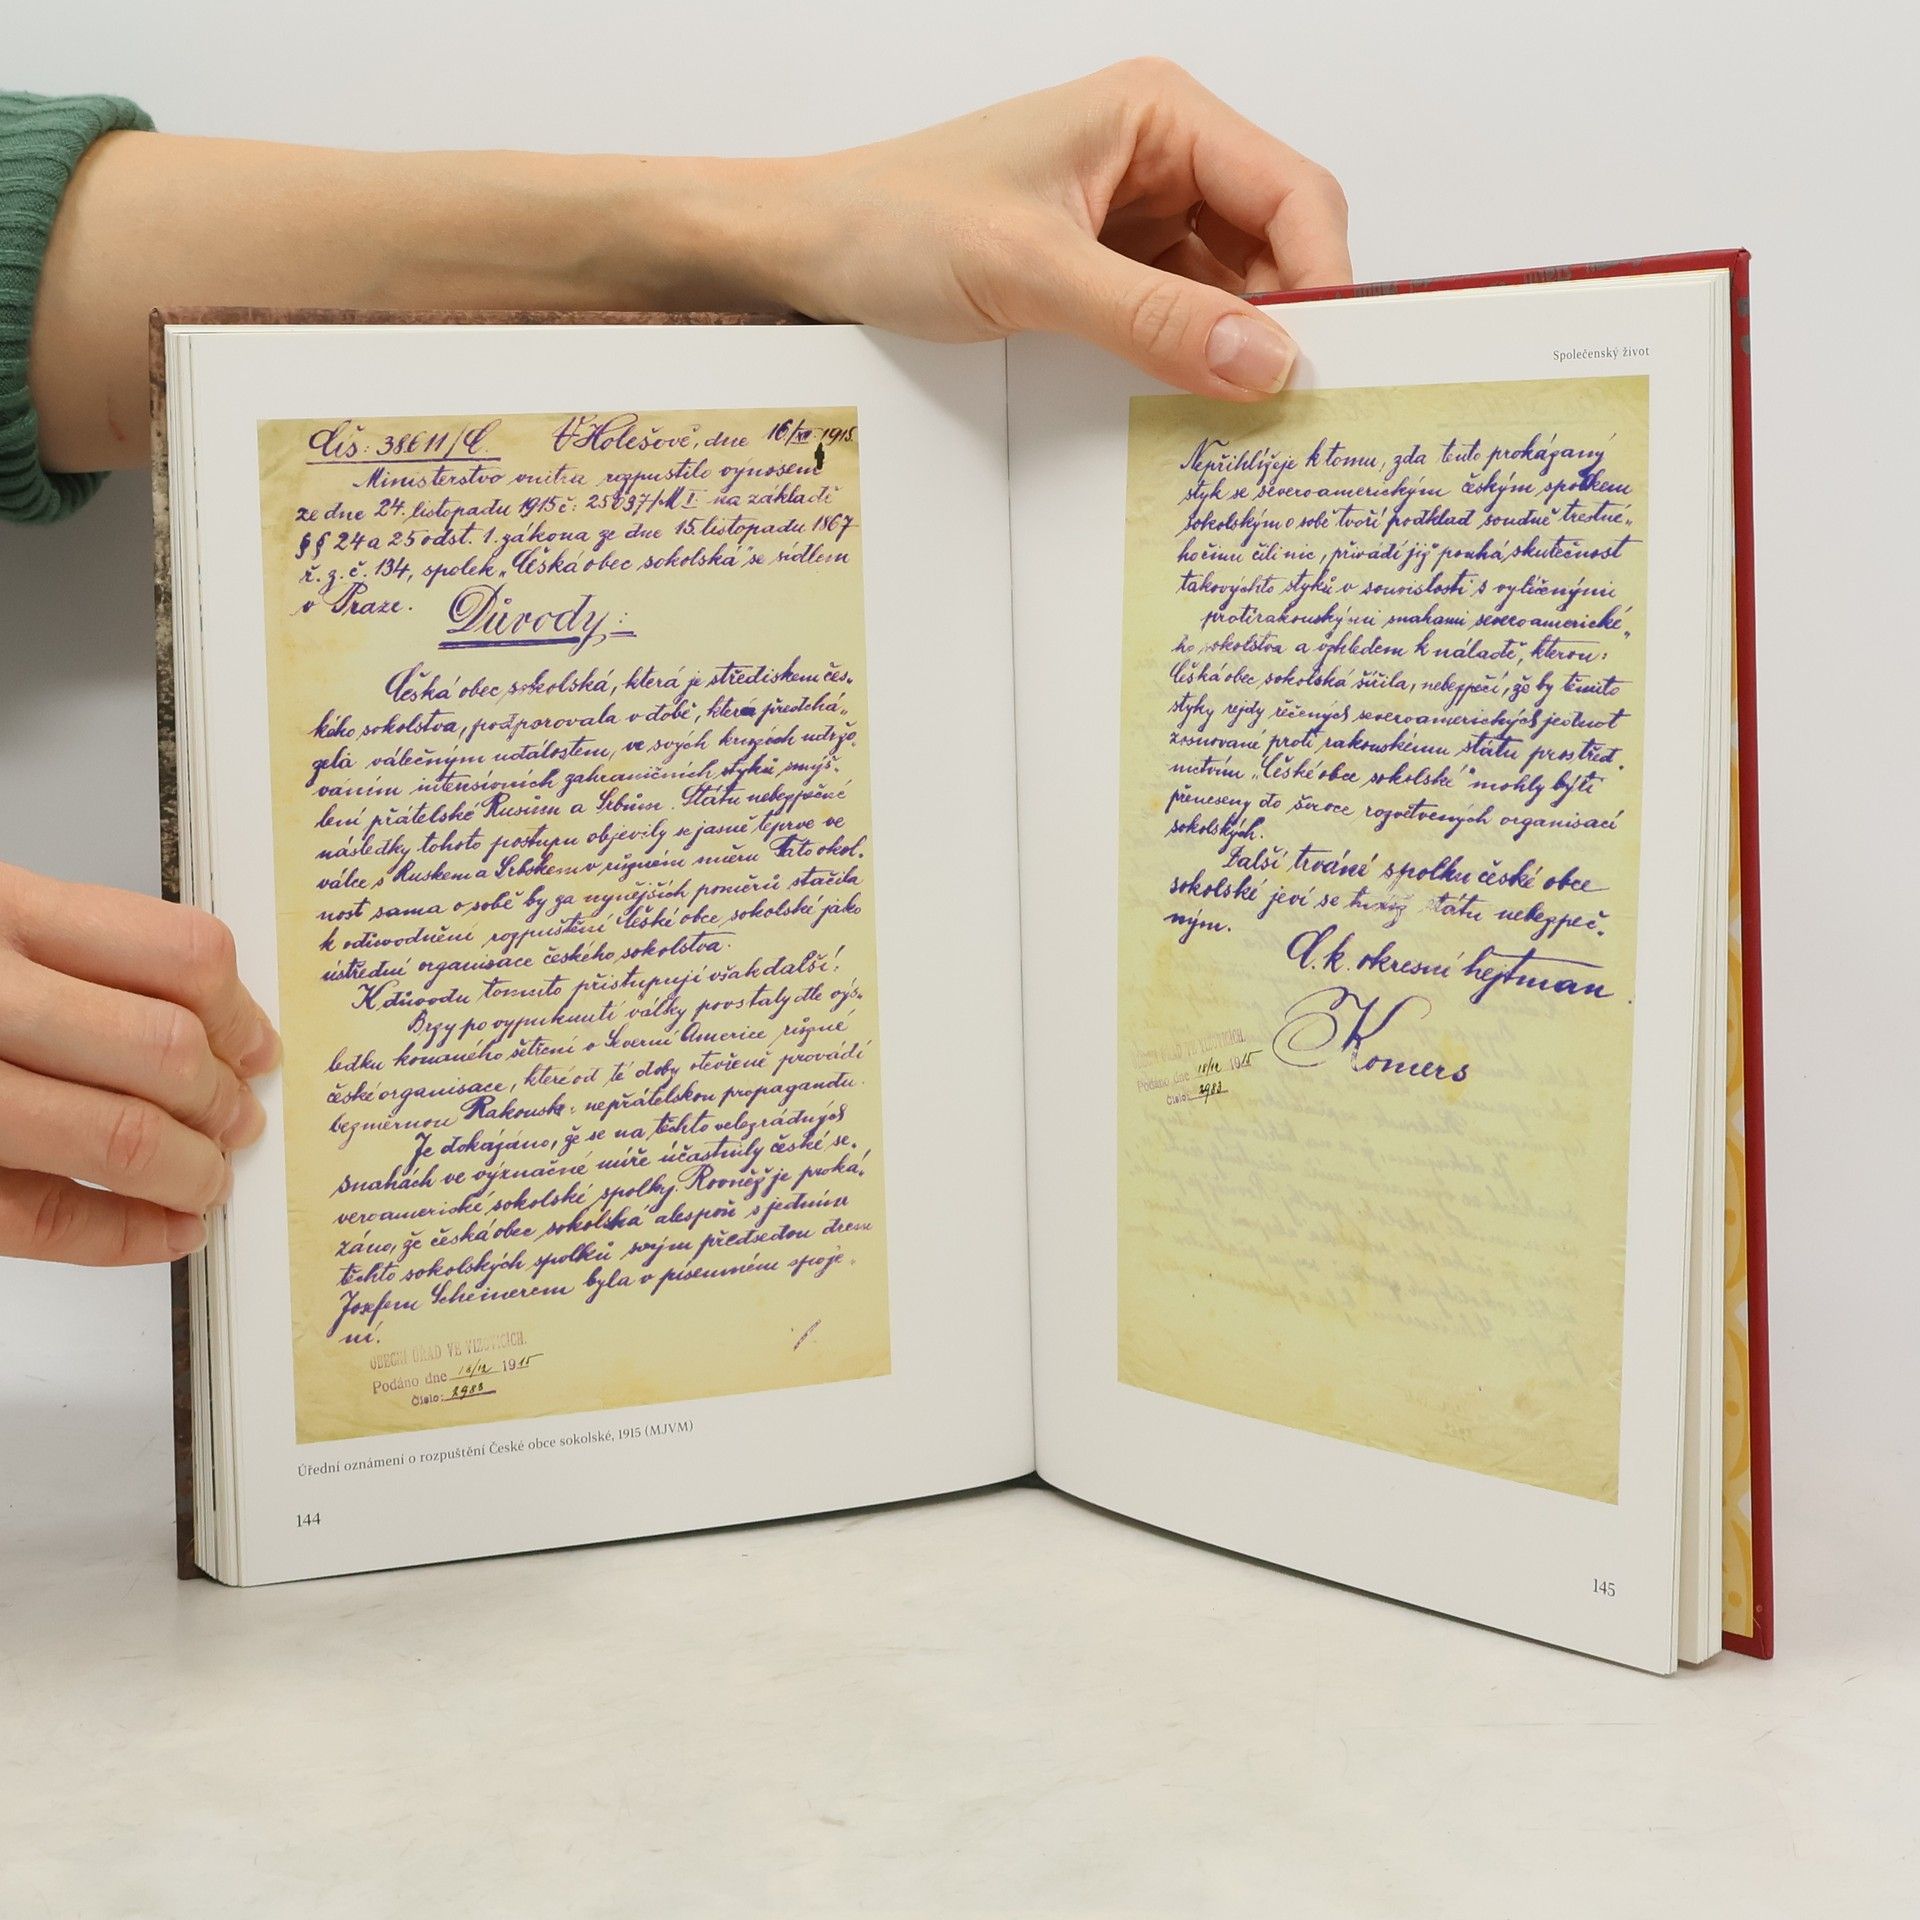 Čís: 38611/C. V Holešově, dne 16/XII 1915.
Ministerstvo vnitra rozpustilo výnosem
ze dne 24. listopadu 1915 č: 25697/M I na základě
§§ 24 a 25 odst. 1. zákona ze dne 15. listopadu 1867
ř. z. č. 134, spolek „Česká obec sokolská" se sídlem
v Praze.
Důvody:
Česká obec sokolská, která je střediskem čes-
kého sokolstva, podporovala v době, která předchá-
zela válečným událostem, ve svých kruzích udržo-
váním intensivních zahraničních styků smýš-
lení přátelské Rusům a Srbům. Státu nebezpečné
následky tohoto postupu objevily se jasně teprve ve
válce s Ruskem a Srbskem v různém směru. Tato okol-
nost sama o sobě by za nynějších poměrů stačila
k odůvodnění rozpuštění České obce sokolské jako
ústřední organisace českého sokolstva.
K důvodu tomuto přistupují však další:
Brzy po vypuknutí války povstaly dle výs-
ledku konaného šetření v Severní Americe různé
české organisace, které od té doby otevřeně provádí
bezměrnou Rakousku nepřátelskou propagandu.
Je dokázáno, že se na těchto velezrádných
snahách ve význačné míře účastnily české se-
veroamerické sokolské spolky. Rovněž je proká-
záno, že česká obec sokolská alespoň s jedním
těchto sokolských spolků svým předsedou drem
Josefem Scheinerem byla v písemném spoje-
ní.
OBECNÍ ÚŘAD VE VIZOVICÍCH.
Podáno dne 18/12 1915
Číslo: 2983
Úřední oznámení o rozpuštění České obce sokolské, 1915 (MJVM)
144
Společenský život
Nepřihlížeje k tomu, zda tento prokázaný
styk se severoamerickým českým spolkem
sokolským o sobě tvoří podklad soudně trestné-
ho činu čili nic, přivádí již pouhá skutečnost
takovýchto styků v souvislosti s vylíčenými
protirakouskými snahami severoamerické-
ho sokolstva a vzhledem k náladě, kterou:
Česká obec sokolská šířila, nebezpečí, že by těmito
styky rejdy řečených severoamerických jednot
zosnované proti rakouskému státu prostřed-
nictvím „České obce sokolské" mohly býti
přeneseny do široce rozvětvených organisací
sokolských.
Další trvání spolku české obce
sokolské jeví se státu nebezpeč-
ným.
C. k. okresní hejtman
Komers
OBECNÍ ÚŘAD VE VIZOVICÍCH.
Podáno dne 18/12 1915
Číslo: 2983
145